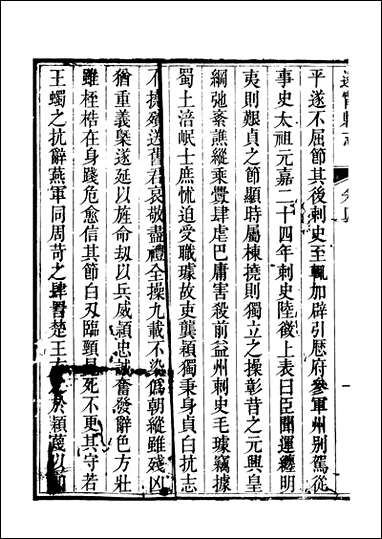 遂寧縣志
卷四
平遂不屈節其後刺史至輒加辟引歷府參軍州別駕從
事史太祖元嘉二十四年刺史陸徵上表曰臣聞運纏明
夷則艱貞之節顯時屬棟撓則獨立之操彰昔之元興皇
綱弛紊譙縱乘釁肆虐巴庸害殺前益州刺史毛璩竊據
蜀土涪岷士庶怵迫受職璩故吏龔穎獨秉身貞白抗志
不撓殯送舊君哀敬盡禮全操九載不染偽朝縱雖殘凶
猶重義槩遂延以旌命刼以兵威穎忠誠奮發辭色方壯
雖桎梏在身踐危愈信其節白刃臨頸見死不更其守若
王蠋之抗辭燕軍同周苛之肆詈楚王 於穎蔑以